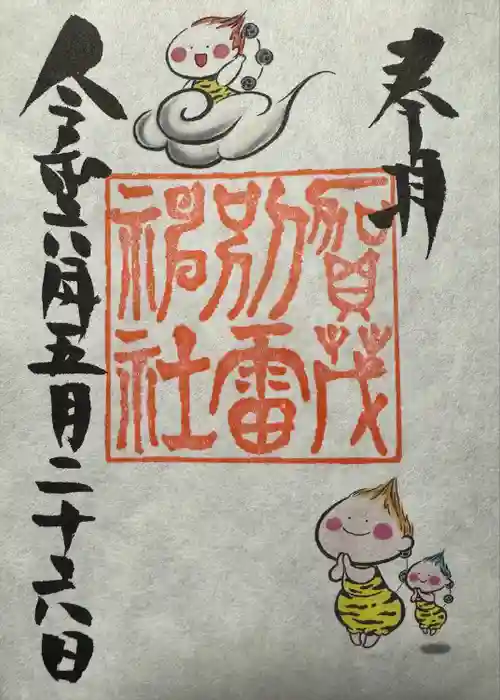 奉拝
賀茂
別雷
神社
令和六年五月二十六日